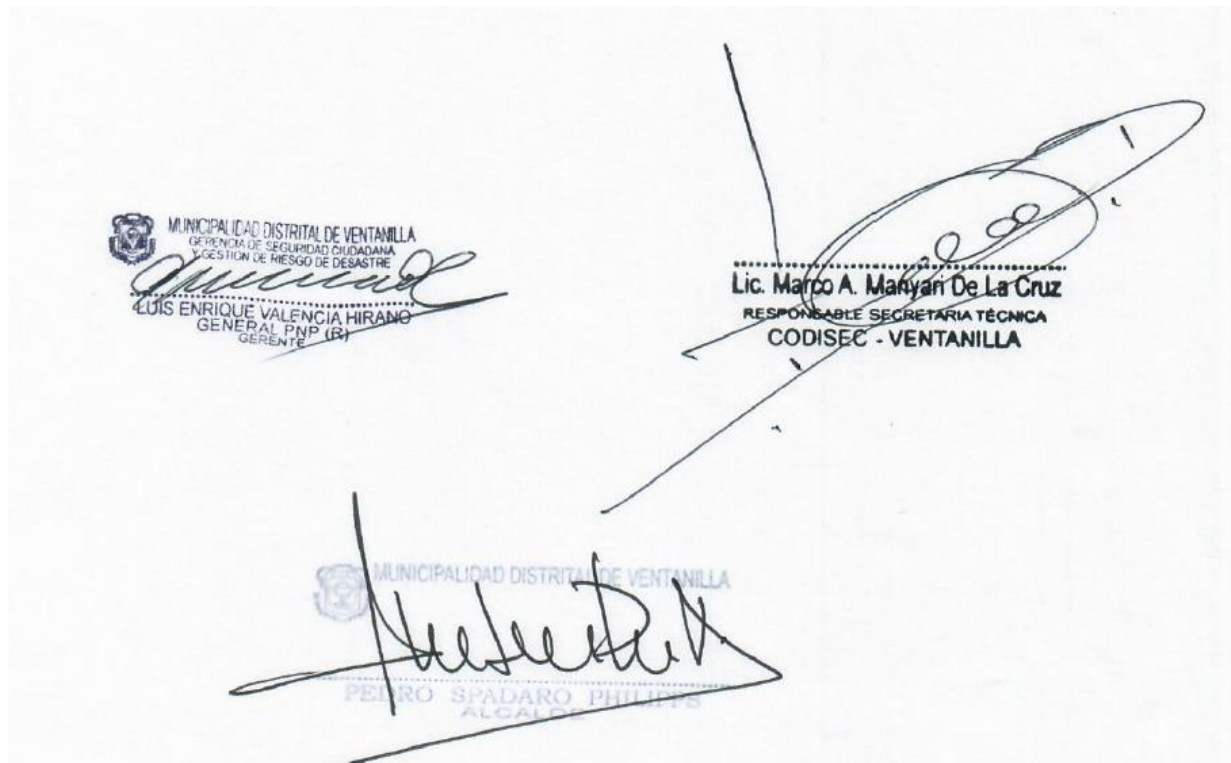 MUNICIPALIDAD DISTRITAL DE VENTANILLA
GERENCIA DE SEGURIDAD CIUDADANA
Y GESTION DE RIESGO DE DESASTRE
LUIS ENRIQUE VALENCIA HIRANO
GENERAL PNP (R)
GERENTE
Lic. Marco A. Manyari De La Cruz
RESPONSABLE SECRETARIA TÉCNICA
CODISEC - VENTANILLA
MUNICIPALIDAD DISTRITAL DE VENTANILLA
PEDRO SPADARO PHILIPPS
ALCALDE